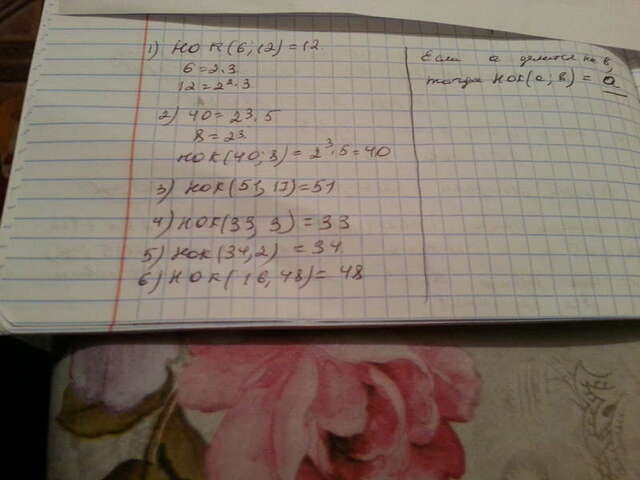 1) НОК(6; 12) = 12
6 = 2·3
12 = 2²·3
2) 40 = 2³·5
8 = 2³
НОК(40; 8) = 2³·5 = 40
3) НОК(51, 17) = 51
4) НОК(33, 3) = 33
5) НОК(34, 2) = 34
6) НОК(16, 48) = 48
Если а делится на в,
тогда НОК(а, в) = а